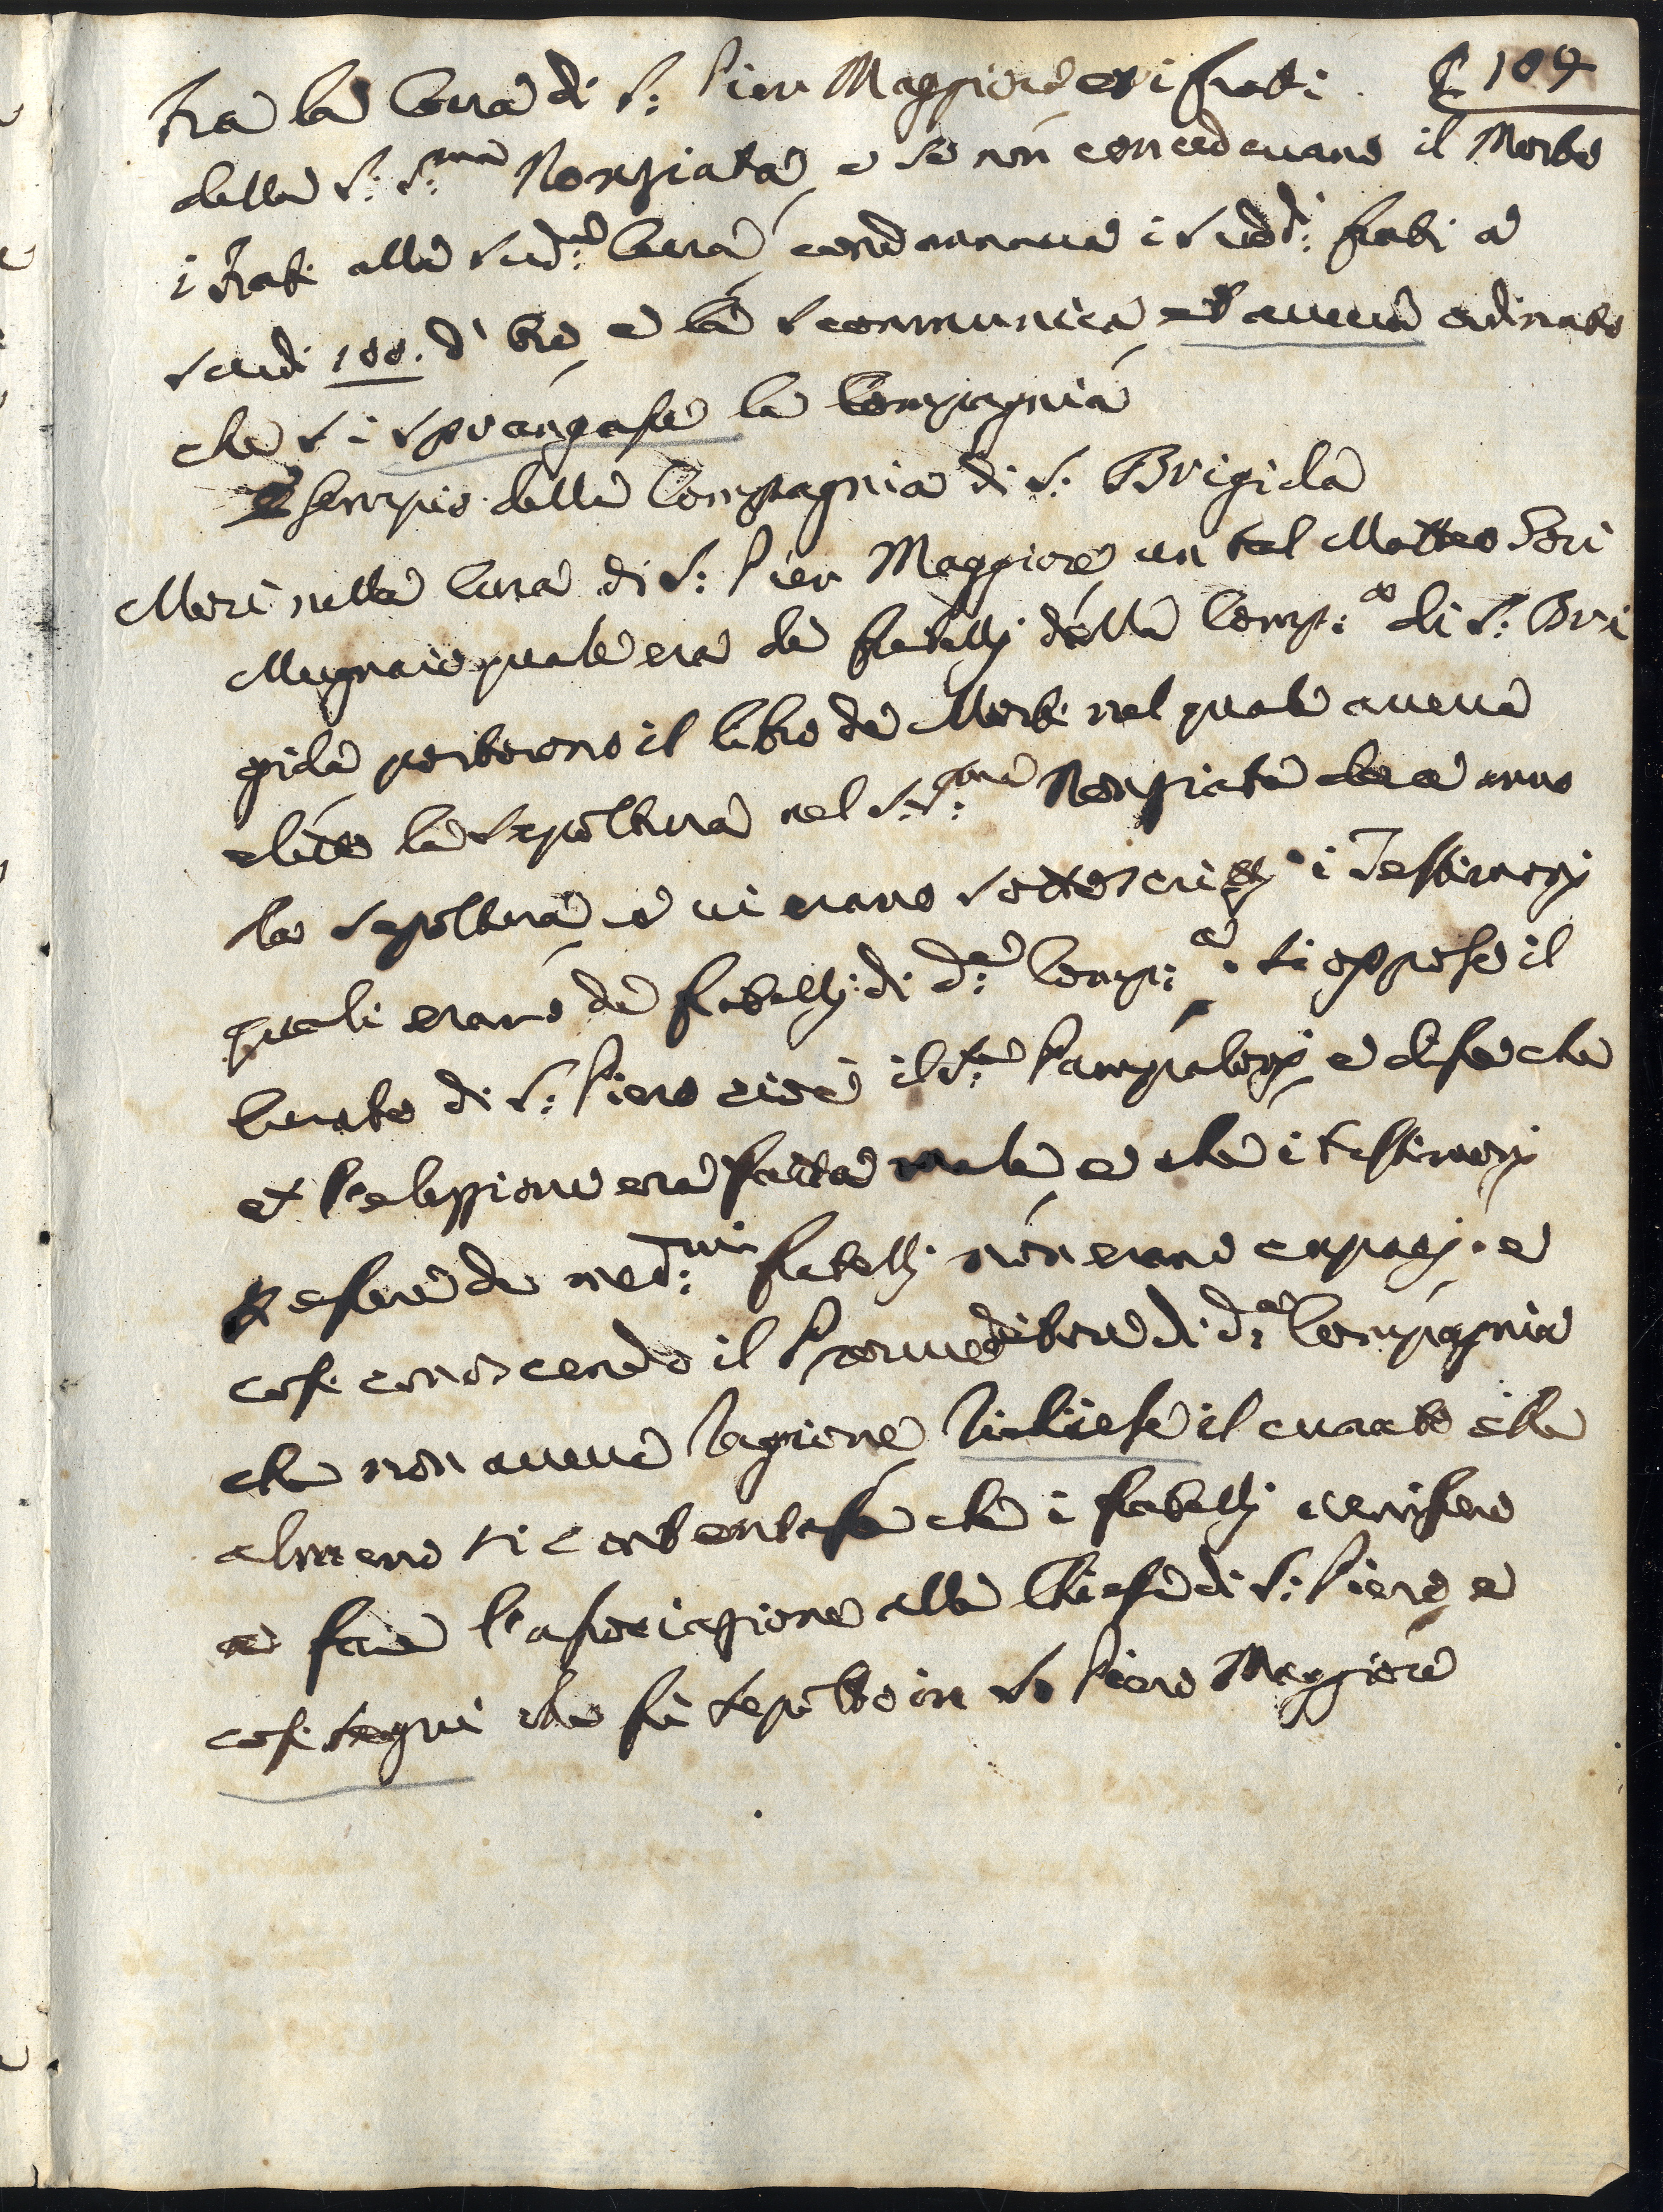 C 109
Tra la Cura di S: Pier Maggiore et i frati
della S: S:ma Nonziata e se non concedevano il Morto
i frati alla sud:a Cura condannava i sudd:i frati a
scudi 100. d'oro e la scommunica et aveva ordinato
che si sprangasse la Compagnia
Esempio della Compagnia di S: Brigida
Morì nella Cura di S: Pier Maggiore un tal Matteo Tori
Mugnaio quale era de fratelli della Comp:a di S: Bri
gida portorono il libro de Morti nel quale aveva
eletto la sepoltura nel S:S:ma Nonziata
la sepoltura e vi erano sottoscritti i Testimonj
quali erano de fratelli di d:a Comp:a si oppose il
Curato di S: Piero cioè il S:re e disse che
et l'elezzione era fatta male e che i testimonj
essere de med:mi fratelli non erano capaci e
cosi conoscendo il Proveditore di d:a Compagnia
che non aveva ragione richiese il curato che
almeno si contentasse che i fratelli venissero
a fare l'associazione alla Chiesa di S: Piero e
cosi seguì che fù sepolto in S. Piero Maggiore